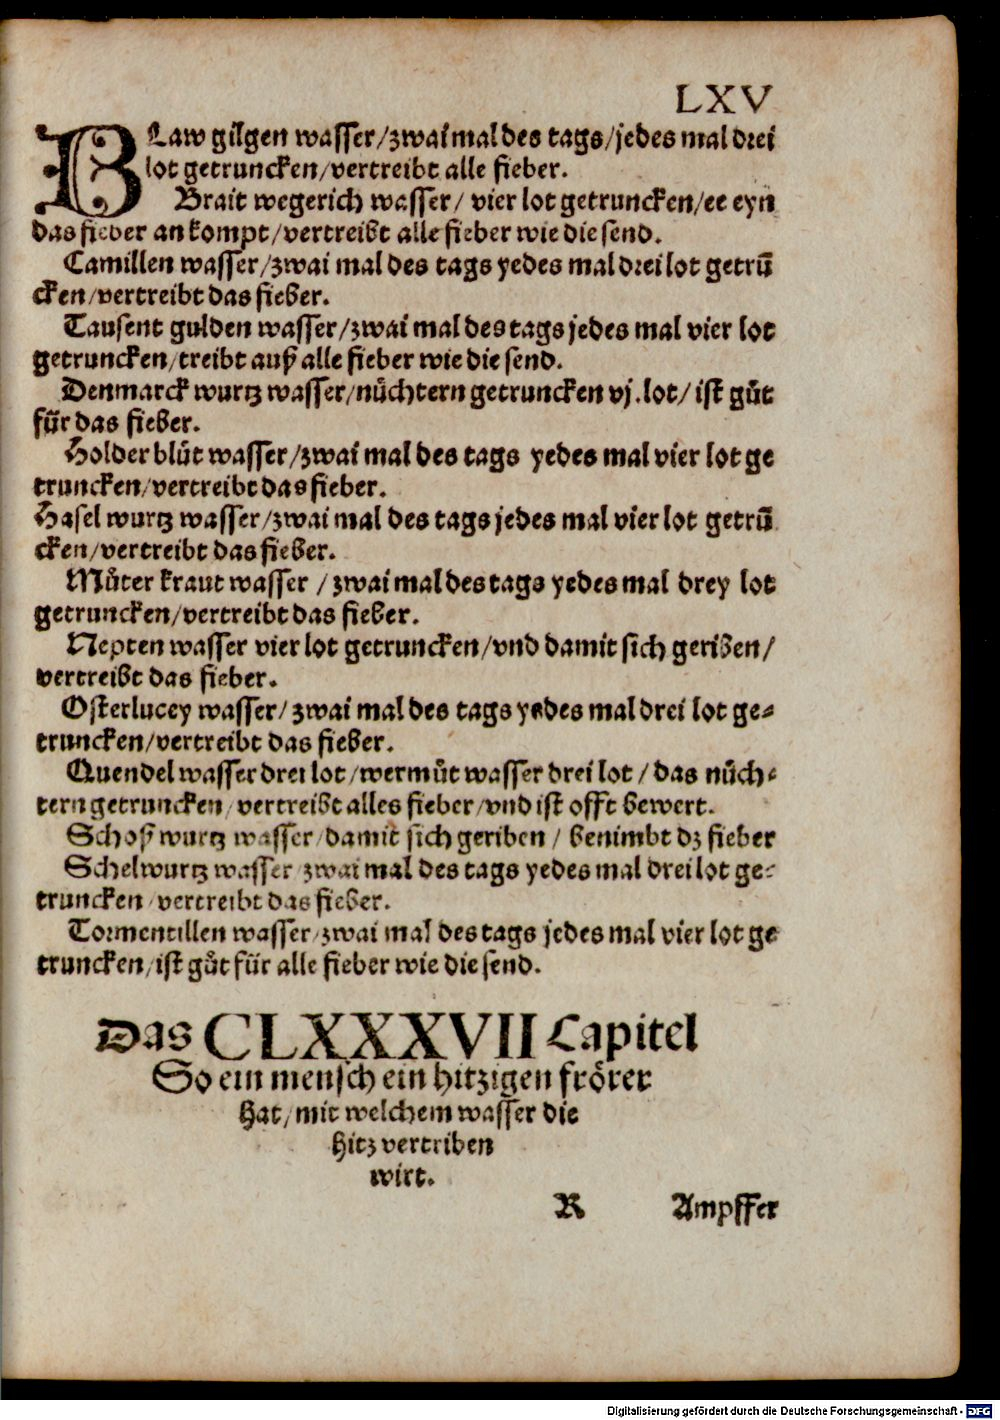 LXV
BLaw gilgen wasser/zwai mal des tags/jedes mal drei
lot getruncken/vertreibt alle fieber.
Brait wegerich wasser/ vier lot getruncken/ee eyn
das fieber an kompt/vertreibt alle fieber wie die send.
Camillen wasser/zwai mal des tags yedes mal drei lot getrū
cken/vertreibt das fieber.
Tausent gulden wasser/zwai mal des tags jedes mal vier lot
getruncken/treibt auß alle fieber wie die send.
Denmarck wurtz wasser/nůchtern getruncken vj.lot/ ist gůt
für das fieber.
Holder blůt wasser/zwai mal des tags yedes mal vier lot ge
truncken/vertreibt das fieber.
Hasel wurtz wasser/zwai mal des tags jedes mal vier lot getrū
cken/vertreibt das fieber.
Můter kraut wasser /zwai mal des tags yedes mal drey lot
getruncken/vertreibt das fieber.
Nepten wasser vier lot getruncken/vnd damit sich geriben/
vertreibt das fieber.
Osterlucey wasser/ zwai mal des tags yedes mal drei lot ge-
truncken/vertreibt das fieber.
Quendel wasser drei lot/wermůt wasser drei lot/das nůch-
tern getruncken/vertreibt alles fieber/vnd ist offt bewert.
Schoß wurtz wasser/damit sich geriben/ benimbt dz fieber
Schelwurtz wasser/zwai mal des tags yedes mal drei lot ge-
truncken/vertreibt das fieber.
Tormentillen wasser/zwai mal des tags jedes mal vier lot ge
truncken/ist gůt für alle fieber wie die send.
Das CLXXXVII Capitel
So ein mensch ein hitzigen frörer
hat/mit welchem wasser die
hitz vertriben
wirt.
R Ampffer
Digitalisierung gefördert durch die Deutsche Forschungsgemeinschaft - DFG